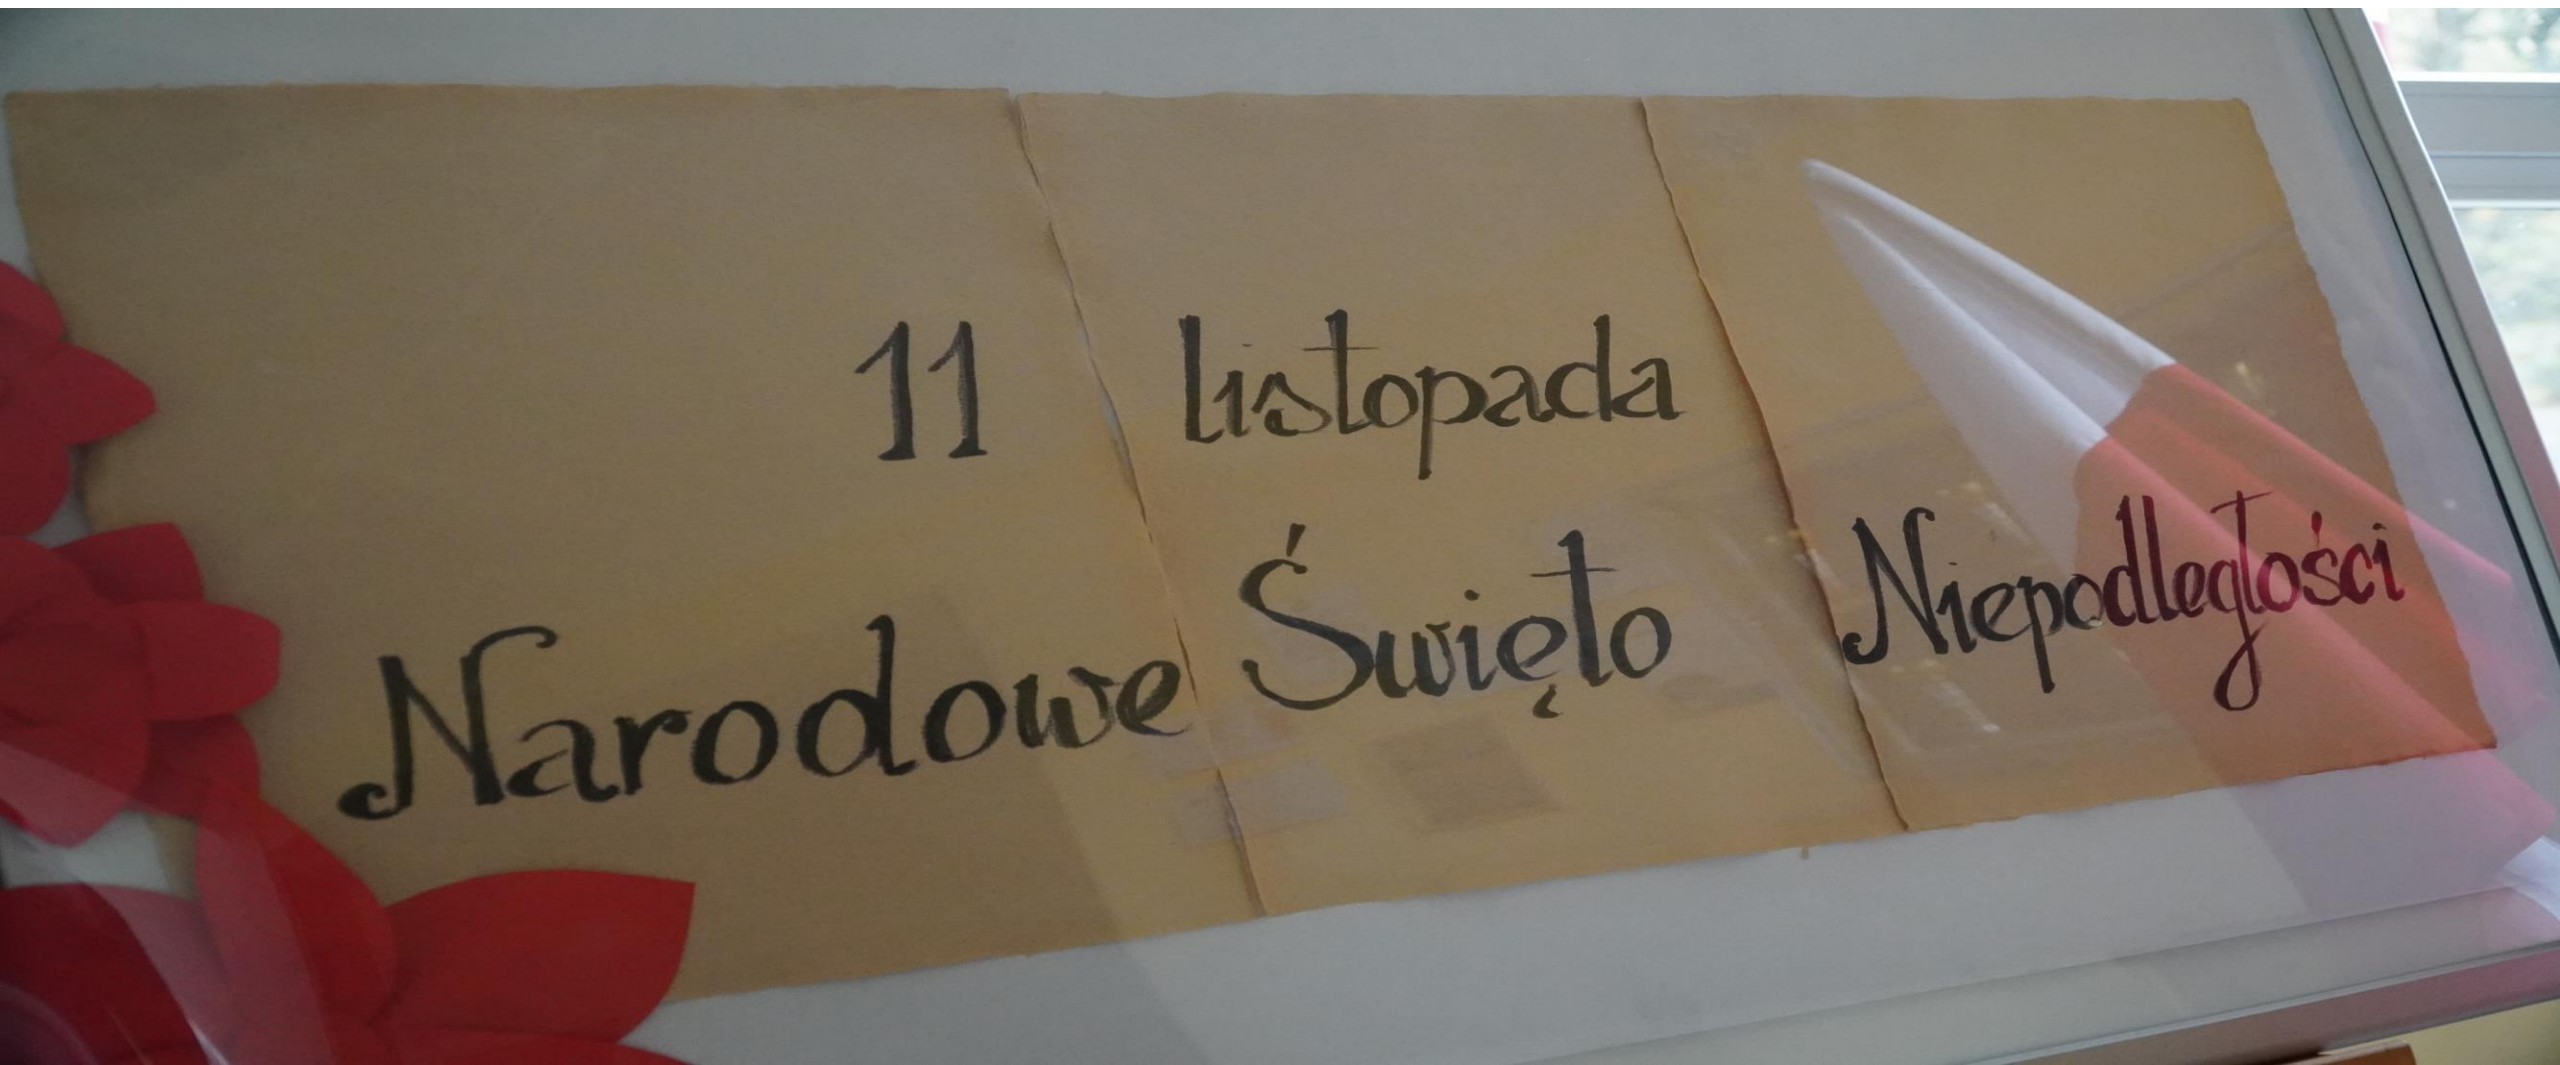 11 listopada
Narodowe Święto Niepodległości